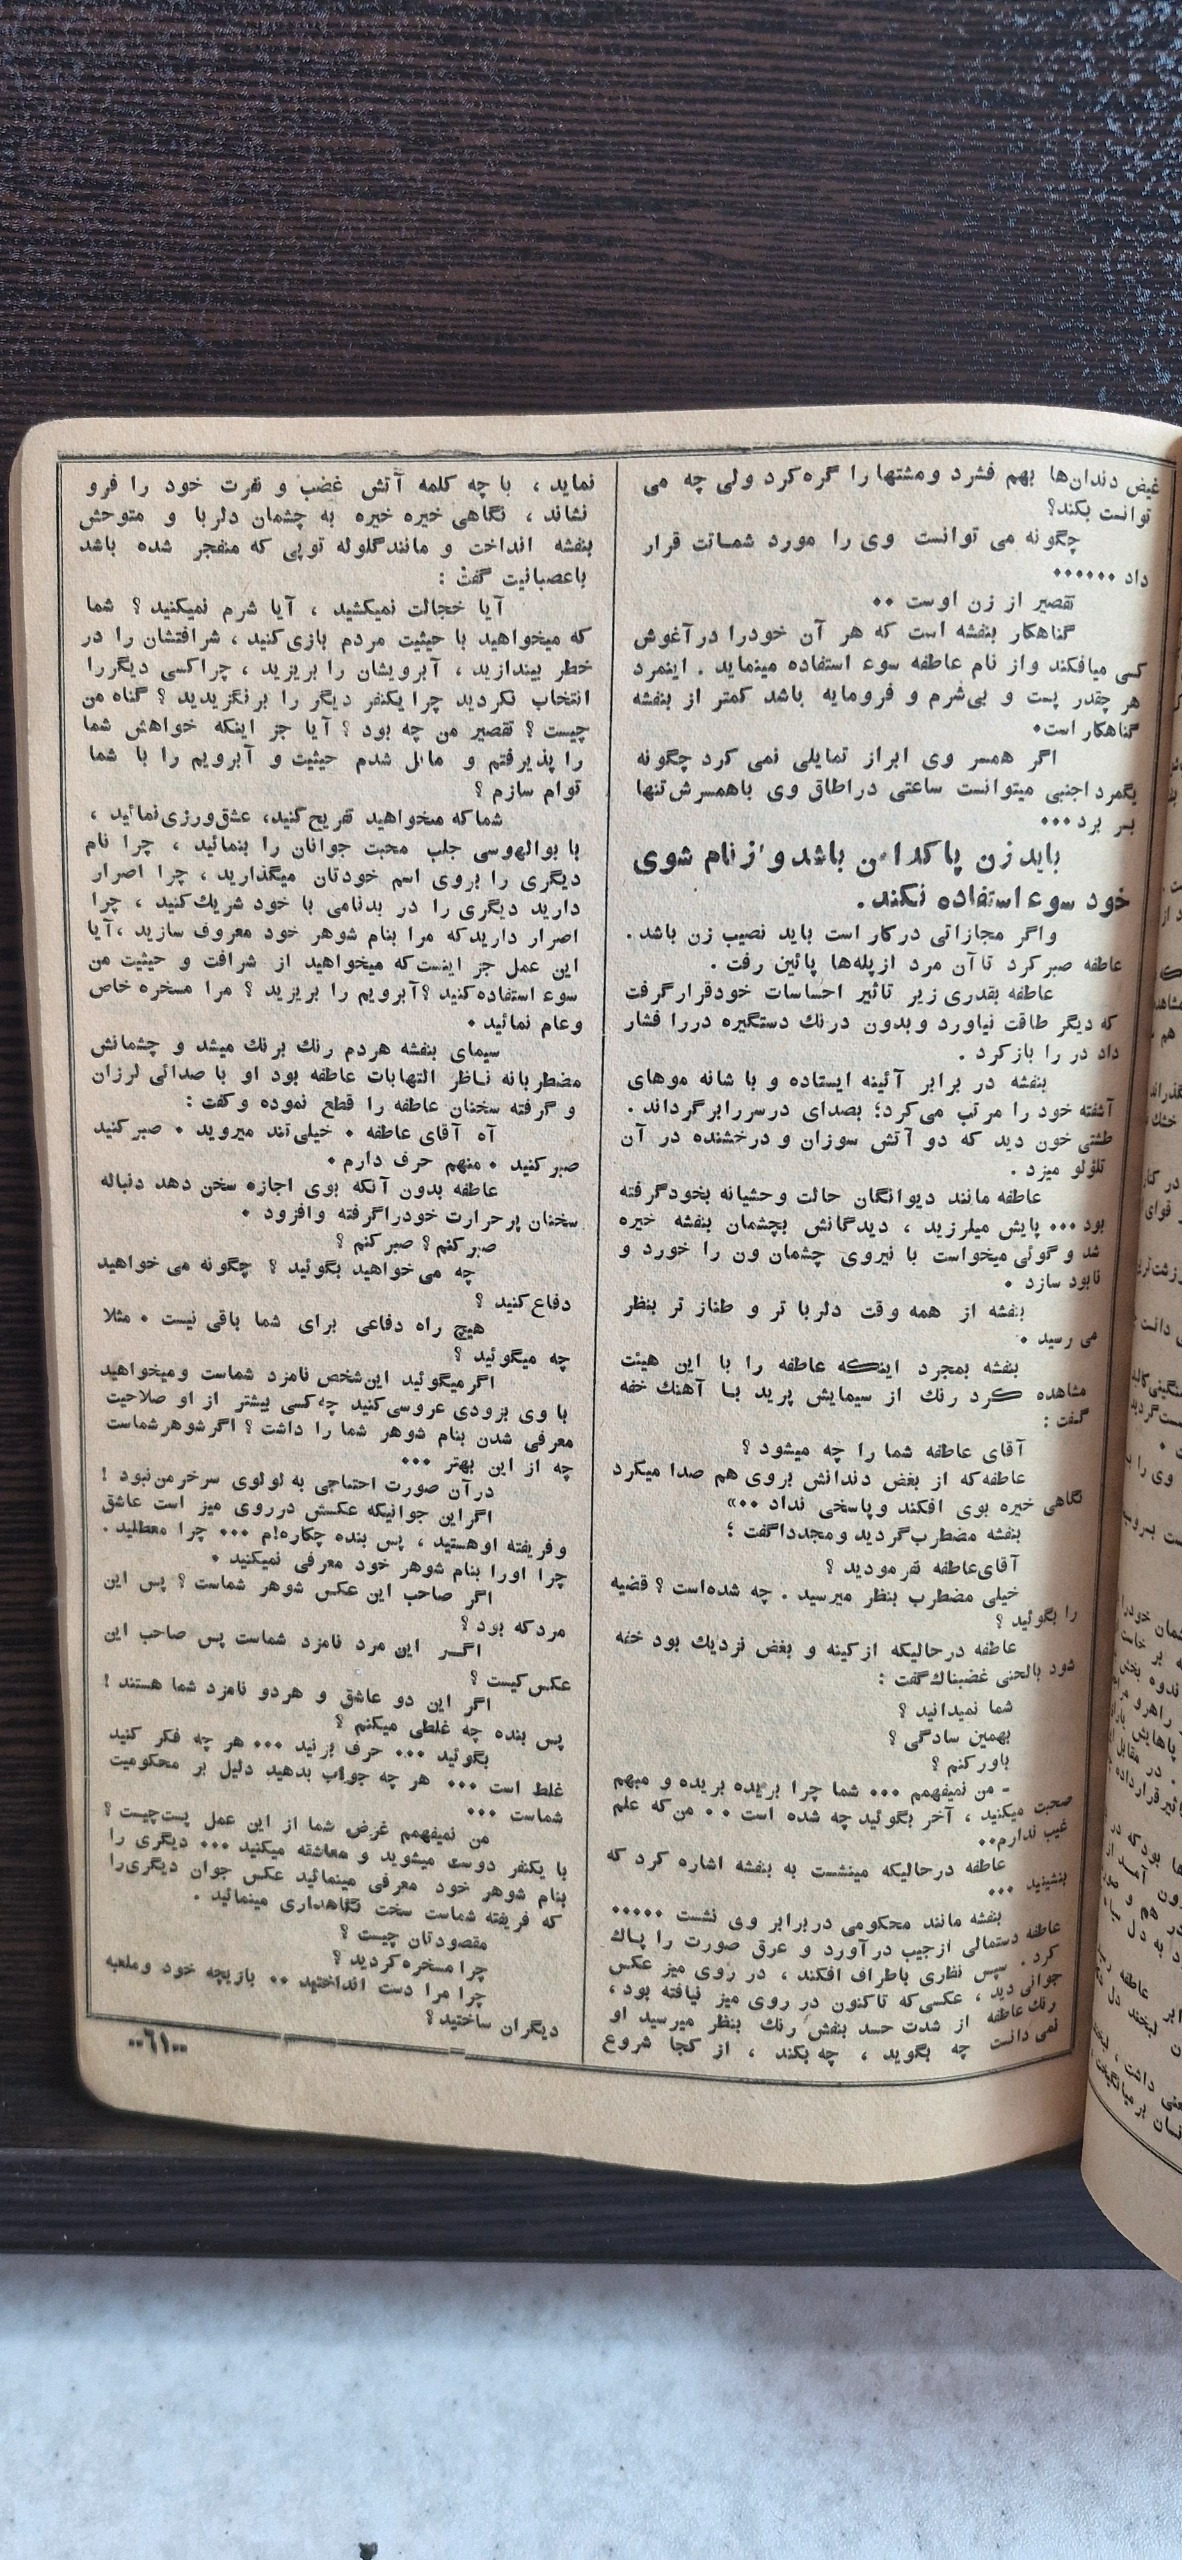 غیض دندان‌ها بهم فشرد ومشتهارا گره‌کرد ولی چه می
توانست بکند؟
چگونه می توانست وی را مورد شماتت قرار
داد ......
تقصیر از زن اوست ..
گناهکار بنفشه است که هر آن خودرا درآغوش
کسی میافکند واز نام عاطفه سوء استفاده مینماید . اینمرد
هر چقدر پست و بی‌شرم و فرومایه باشد کمتر از بنفشه
گناهکار است.
اگر همسر وی ابراز تمایلی نمی کرد چگونه
یکمرد اجنبی میتوانست ساعتی دراطاق وی باهمسرش تنها
بسر برد...
باید زن پاکدامن باشد و از نام شوی
خود سوء استفاده نکند .
واگر مجازاتی درکار است باید نصیب زن باشد .
عاطفه صبرکرد تاآن مرد ازپله‌ها پائین رفت .
عاطفه بقدری زیر تاثیر احساسات خودقرارگرفت
که دیگر طاقت نیاورد وبدون درنك دستگیره دررا فشار
داد در را بازکرد .
بنفشه در برابر آئینه ایستاده و با شانه موهای
آشفته خود را مرتب می‌کرد؛ بصدای درسررابرگرداند .
طشتی خون دید که دو آتش سوزان و درخشنده در آن
تلؤلو میزد .
عاطفه مانند دیوانگان حالت وحشیانه بخودگرفته
بود ... پایش میلرزید ، دیدگانش بچشمان بنفشه خیره
شد و گوئی میخواست با نیروی چشمان ون را خورد و
نابود سازد .
بنفشه از همه وقت دلربا تر و طناز تر بنظر
می رسید .
بنفشه بمجرد اینکه عاطفه را با این هیئت
مشاهده کرد رنك از سیمایش پرید با آهنك خفه
گفت :
آقای عاطفه شما را چه میشود ؟
عاطفه‌که از بغض دندانش بروی هم صدا میکرد
نگاهی خیره بوی افکند وپاسخی نداد ..»
بنفشه مضطرب‌گردید ومجدداگفت ؛
آقای‌عاطفه نفرمودید ؟
خیلی مضطرب بنظر میرسید . چه شده‌است ؟ قضیه
را بگوئید ؟
عاطفه درحالیکه ازکینه و بغض نزدیك بود خفه
شود بالحنی غضبناك‌گفت :
شما نمیدانید ؟
بهمین سادگی ؟
باورکنم ؟
- من نمیفهمم ... شما چرا بریده بریده و مبهم
صحبت میکنید ، آخر بگوئید چه شده است .. من‌که علم
غیب ندارم..
عاطفه درحالیکه مینشست به بنفشه اشاره کرد که
بنشینید ...
بنفشه مانند محکومی دربرابر وی نشست .....
عاطفه دستمالی ازجیب درآورد و عرق صورت را پاك
کرد . سپس نظاری باطراف افکند ، در روی میز عکس
جوانی دید ، عکسی‌که تاکنون در روی میز نیافته بود ،
رنك عاطفه از شدت حسد بنفش رنك بنظر میرسید او
نمی دانست چه بگوید ، چه بکند ، از کجا شروع
نماید ، با چه کلمه آتش غضب و نفرت خود را فرو
نشاند ، نگاهی خیره خیره به چشمان دلربا و متوحش
بنفشه انداخت و مانندگلوله توپی که منفجر شده باشد
باعصبانیت گفت :
آیا خجالت نمیکشید ، آیا شرم نمیکنید ؟ شما
که میخواهید با حیثیت مردم بازی‌کنید ، شرافتشان را در
خطر بیندازید ، آبرویشان را بریزید ، چراکسی دیگررا
انتخاب نکردید چرا یکنفر دیگر را برنگزیدید ؟ گناه من
چیست ؟ تقصیر من چه بود ؟ آیا جز اینکه خواهش شما
را پذیرفتم و مایل شدم حیثیت و آبرویم را با شما
توام سازم ؟
شماکه میخواهید تفریح‌کنید، عشق‌ورزی‌نمائید ،
با بوالهوسی جلب محبت جوانان را بنمائید ، چرا نام
دیگری را بروی اسم خودتان میگذارید ، چرا اصرار
دارید دیگری را در بدنامی با خود شریك‌کنید ، چرا
اصرار داریدکه مرا بنام شوهر خود معروف سازید ،آیا
این عمل جز اینست‌که میخواهید از شرافت و حیثیت من
سوء استفاده‌کنید ؟آبرویم را بریزید ؟ مرا مسخره خاص
وعام نمائید .
سیمای بنفشه هردم رنك برنك میشد و چشمانش
مضطربانه ناظر التهابات عاطفه بود او با صدائی لرزان
و گرفته سخنان عاطفه را قطع نموده وگفت :
آه آقای عاطفه . خیلی‌تند میروید . صبرکنید
صبرکنید . منهم حرف دارم .
عاطفه بدون آنکه بوی اجازه سخن دهد دنباله
سخنان پرحرارت خودراگرفته وافزود .
صبرکنم ؟ صبرکنم ؟
چه می‌خواهید بگوئید ؟ چگونه می خواهید
دفاع‌کنید ؟
هیچ راه دفاعی برای شما باقی نیست . مثلا
چه میگوئید ؟
اگرمیگوئید این‌شخص نامزد شماست ومیخواهید
با وی بزودی عروسی‌کنید چه‌کسی بیشتر از او صلاحیت
معرفی شدن بنام شوهر شما را داشت ؟ اگرشوهرشماست
چه از این بهتر ...
درآن صورت احتیاجی به لولوی سرخرمن‌نبود !
اگراین جوانیکه عکسش درروی میز است عاشق
وفریفته اوهستید ، پس بنده چکاره‌ام ... چرا معطلید .
چرا اورا بنام شوهر خود معرفی نمیکنید .
اگر صاحب این عکس شوهر شماست ؟ پس این
مردکه بود ؟
اگر این مرد نامزد شماست پس صاحب این
عکس‌کیست ؟
اگر این دو عاشق و هردو نامزد شما هستند !
پس بنده چه غلطی میکنم ؟
بگوئید ... حرف بزنید ... هر چه فکر کنید
غلط است ... هر چه جواب بدهید دلیل بر محکومیت
شماست ...
من نمیفهمم غرض شما از این عمل پست‌چیست ؟
با یکنفر دوست میشوید و معاشقه میکنید ... دیگری را
بنام شوهر خود معرفی مینمائید عکس جوان دیگری‌را
که فریفته شماست سخت نگاهداری مینمائید .
مقصودتان چیست ؟
چرا مسخره‌کردید ؟
چرا مرا دست انداختید .. بازیچه خود وملعبه
دیگران ساختید؟
..۶۱..